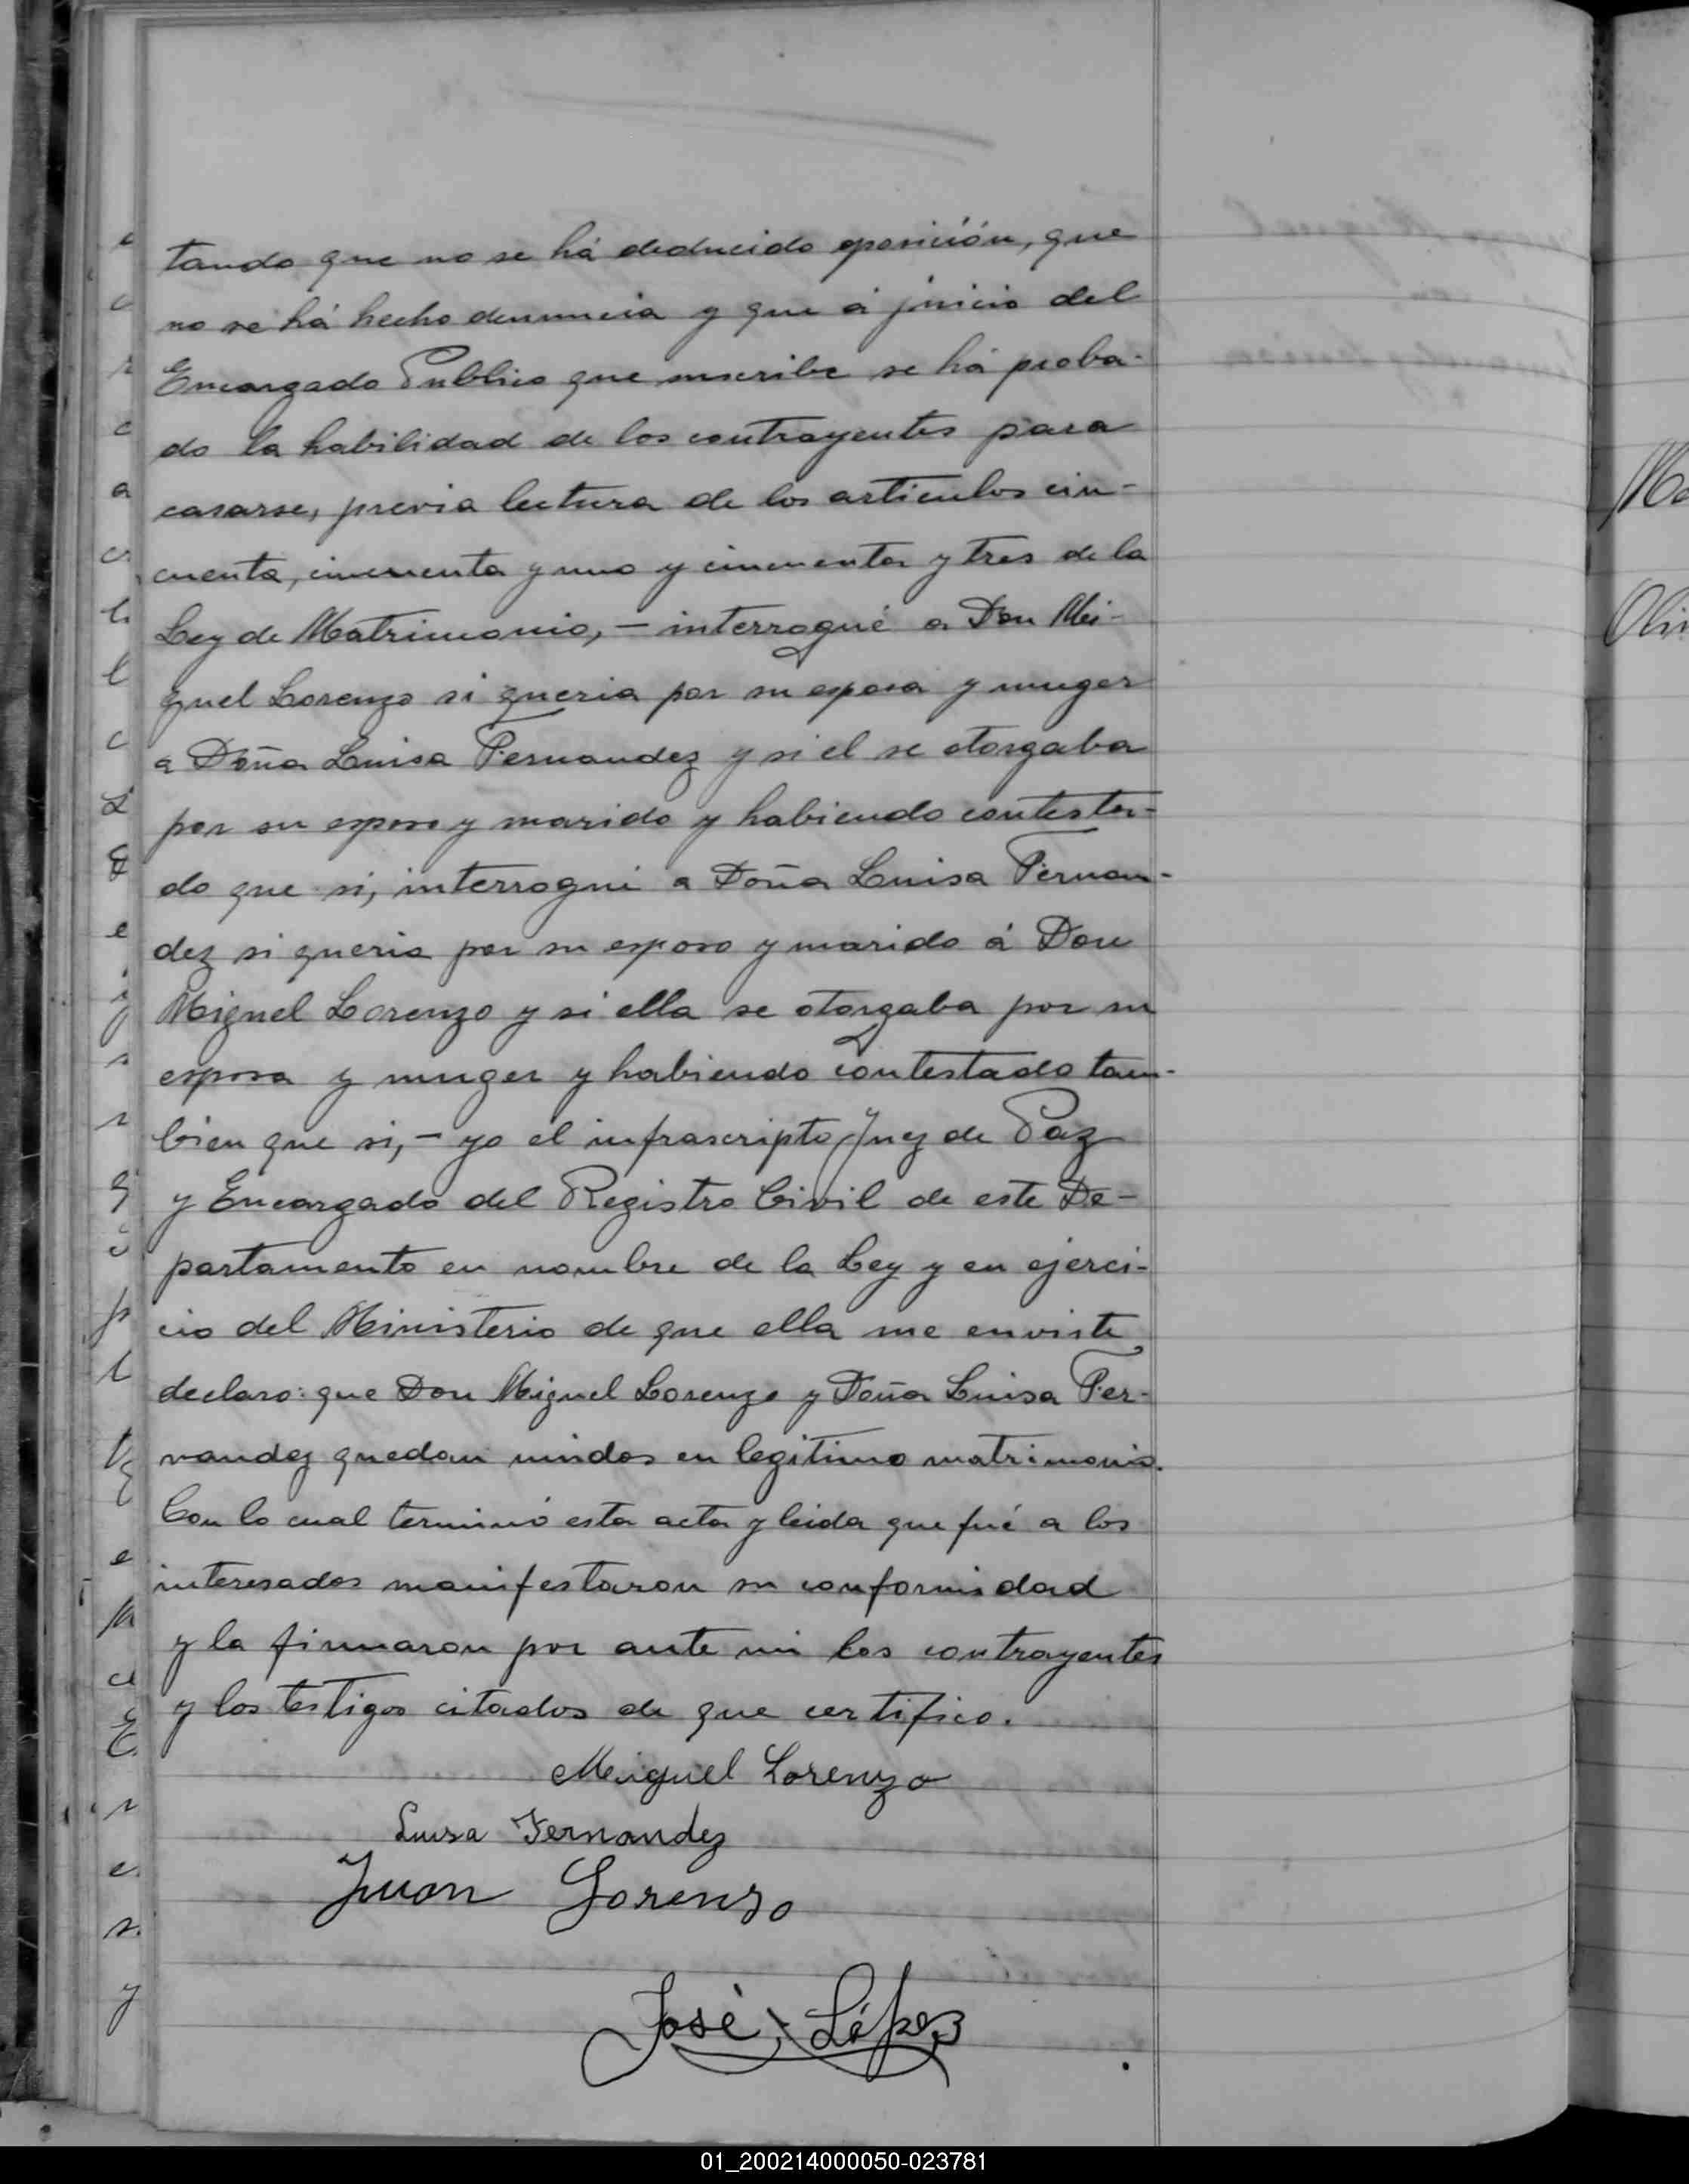 tando que no se há deducido oposición, que
no se há hecho denuncia y que á juicio del
Encargado Publico que inscribe se há proba-
do la habilidad de los contrayentes para
casarse, previa lectura de los articulos cin-
cuenta, cincuenta y uno y cincuenta y tres de la
Ley de Matrimonio, - interrogué a Don Mi-
guel Lorenzo si queria por su esposa y muger
a Doña Luisa Fernandez y si el se otorgaba
por su esposo y marido y habiendo contesta-
do que si, interrogué a Doña Luisa Fernan-
dez si queria por su esposo y marido á Don
Miguel Lorenzo y si ella se otorgaba por su
esposa y muger y habiendo contestado tam-
bien que si, - yo el infrascripto Juez de Paz
y Encargado del Registro Civil de este De-
partamento en nombre de la Ley y en ejerci-
cio del Ministerio de que ella me enviste
declaro: que Don Miguel Lorenzo y Doña Luisa Fer-
nandez quedan unidos en legitimo matrimonio.
Con lo cual terminó esta acta y leida que fué a los
interesados manifestaron su conformidad
y la firmaron por ante mi los contrayentes
y los testigos citados de que certifico.
Miguel Lorenzo
Luisa Fernandez
Juan Lorenzo
José López
01_200214000050-023781